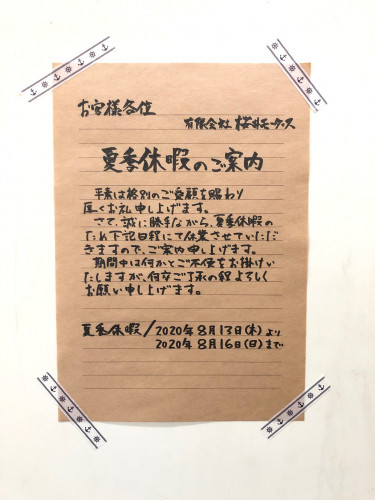 お客様各位
有限会社 桜井モータース
夏季休暇のご案内
平素は格別のご愛顧を賜わり
厚くお礼申し上げます。
さて、誠に勝手ながら、夏季休暇の
ため下記日程にて休業させていただ
きますので、ご案内申し上げます。
期間中は何かとご不便をお掛けい
たしますが、何卒ご了承の程よろしく
お願い申し上げます。
夏季休暇/2020年8月13日(木)より
2020年8月16日(日)まで